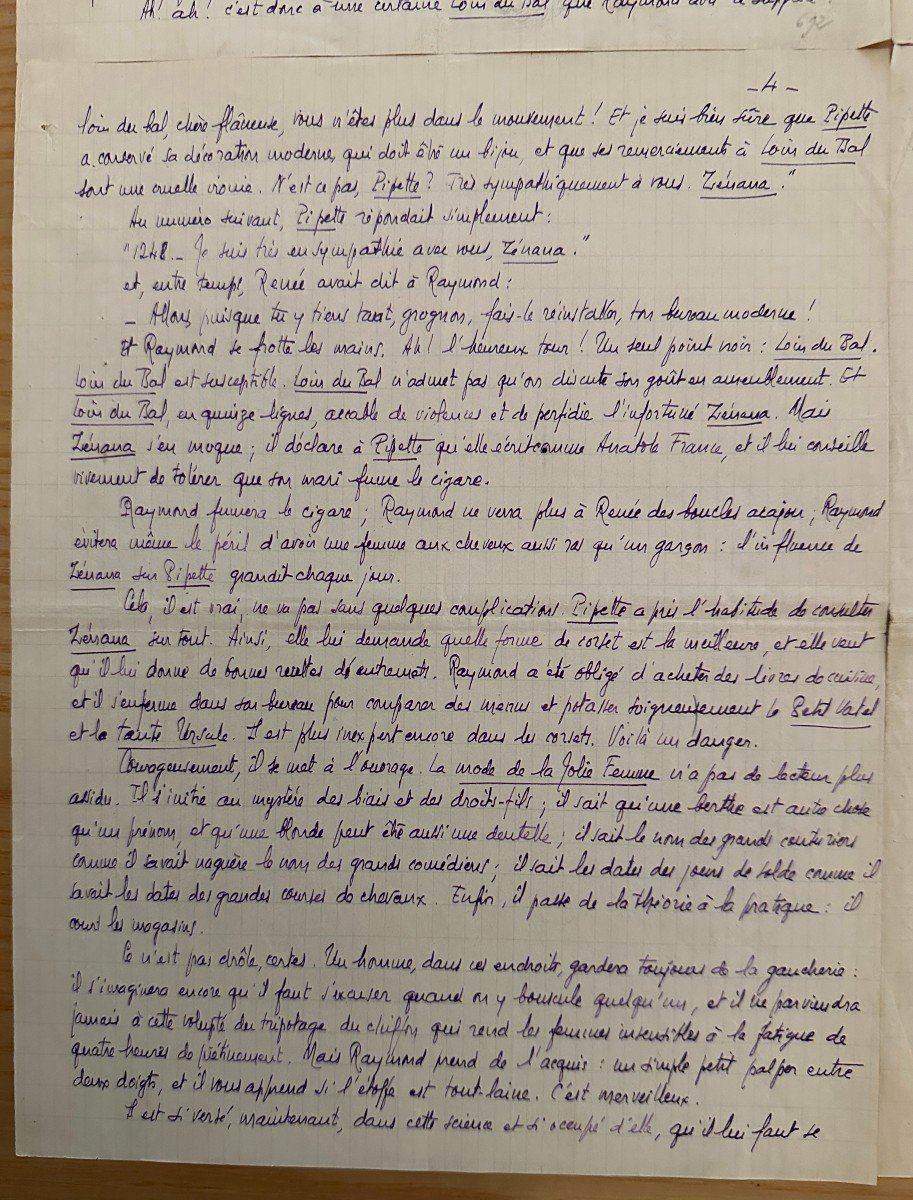 Ah! ah! c'est donc à une certaine Loin du Bal que Raymond
692
- 4 -
loin du bal, chère flâneuse, vous n'êtes plus dans le mouvement! Et je suis bien sûre que Pipette
a conservé sa décoration moderne, qui doit être un bijou, et que ses remerciements à Loin du Bal
sont une cruelle ironie. N'est-ce pas, Pipette? Très sympathiquement à vous. Zénana."
Au numéro suivant, Pipette répondait simplement:
"1248 _ Je suis très en sympathie avec vous, Zénana."
et, entre temps, Renée avait dit à Raymond:
_ Allons, puisque tu y tiens tant, grognon, fais-le réinstaller, ton bureau moderne!
Et Raymond se frotte les mains. Ah! l'heureux tour! Un seul point noir: Loin du Bal.
Loin du Bal est susceptible. Loin du Bal n'admet pas qu'on discute son goût en ameublement. Et
Loin du Bal, en quinze lignes, accable de violences et de perfidie l'infortuné Zénana. Mais
Zénana s'en moque; il déclare à Pipette qu'elle écrit comme Anatole France, et il lui conseille
vivement de tolérer que son mari fume le cigare.
Raymond fumera le cigare; Raymond ne verra plus à Renée des boucles acajou; Raymond
évitera même le péril d'avoir une femme aux cheveux aussi ras qu'un garçon: l'influence de
Zénana sur Pipette grandit chaque jour.
Cela, il est vrai, ne va pas sans quelques complications. Pipette a pris l'habitude de consulter
Zénana sur tout. Ainsi, elle lui demande quelle forme de corset est la meilleure, et elle veut
qu'il lui donne de bonnes recettes d'entremets. Raymond a été obligé d'acheter des livres de cuisine,
et il s'enferme dans son bureau pour comparer des menus et potasser soigneusement le Petit Vatel
et la tante Ursule. Il est plus inexpert encore dans les corsets. Voilà un danger.
Courageusement, il se met à l'ouvrage. La mode de la Jolie Femme n'a pas de lecteur plus
assidu. Il s'initie au mystère des biais et des droits-fils; il sait qu'une berthe est autre chose
qu'un prénom, et qu'une blonde peut être aussi une dentelle; il sait le nom des grands couturiers
comme il savait naguère le nom des grands comédiens; il sait les dates des jours de solde comme il
savait les dates des grandes courses de chevaux. Enfin, il passe de la théorie à la pratique: il
court les magasins.
Ce n'est pas drôle, certes. Un homme, dans ces endroits, gardera toujours de la gaucherie:
il s'imaginera encore qu'il faut s'excuser quand on y bouscule quelqu'un, et il ne parviendra
jamais à cette volupté du tripotage du chiffon qui rend les femmes insensibles à la fatigue de
quatre heures de piétinement. Mais Raymond prend de l'acquis: un simple petit palper entre
deux doigts, et il vous apprend si l'étoffe est tout-laine. C'est merveilleux.
Il est si versé, maintenant, dans cette science et si occupé d'elle, qu'il lui faut se